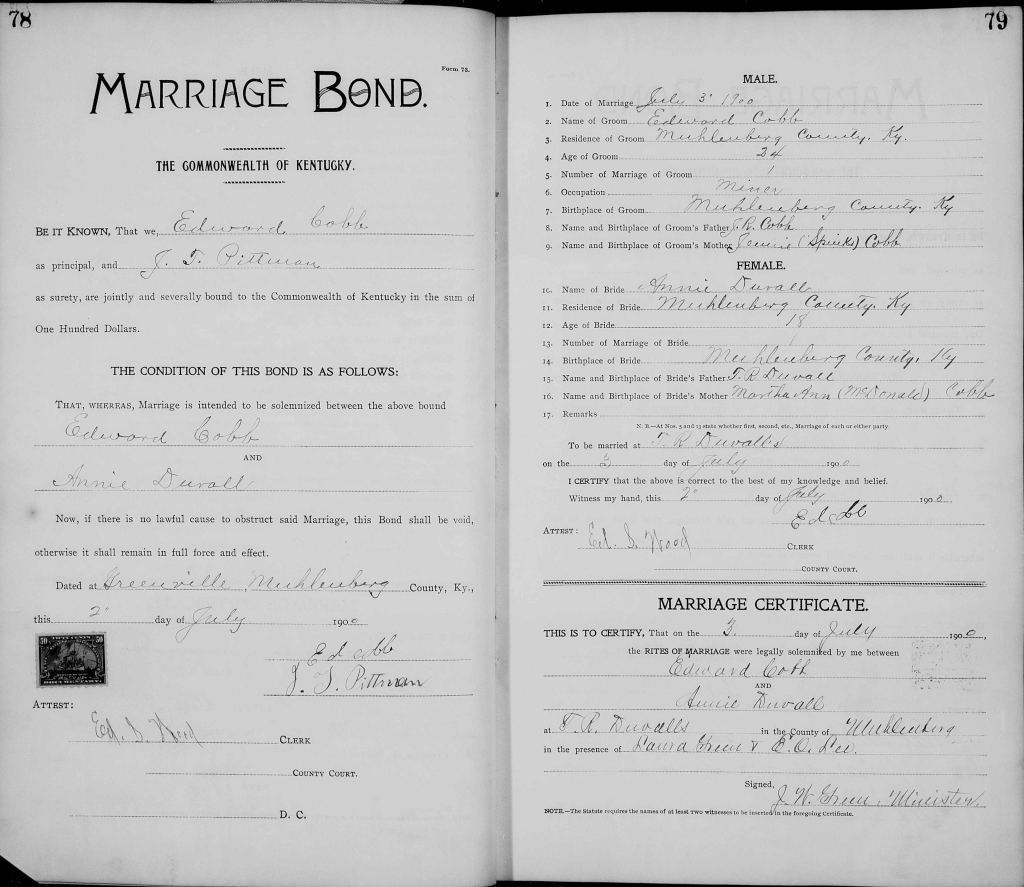 78
Form 73.
MARRIAGE BOND.
THE COMMONWEALTH OF KENTUCKY.
BE IT KNOWN, That we, Edward Cobb
as principal, and J. T. Pittman
as surety, are jointly and severally bound to the Commonwealth of Kentucky in the sum of
One Hundred Dollars.
THE CONDITION OF THIS BOND IS AS FOLLOWS:
THAT, WHEREAS, Marriage is intended to be solemnized between the above bound
Edward Cobb
AND
Annie Duvall
Now, if there is no lawful cause to obstruct said Marriage, this Bond shall be void,
otherwise it shall remain in full force and effect.
Dated at Greenville, Muhlenberg County, Ky.,
this 2" day of July 1900
Ed Cobb
J. T. Pittman
50 50
DOCUMENTARY
ATTEST:
Ed. S. Wood CLERK
COUNTY COURT.
D. C.
79
MALE.
1. Date of Marriage July 3" 1900
2. Name of Groom Edward Cobb
3. Residence of Groom Muhlenberg County, Ky.
4. Age of Groom 24
5. Number of Marriage of Groom 1
6. Occupation Miner
7. Birthplace of Groom Muhlenberg County, Ky
8. Name and Birthplace of Groom's Father J. R. Cobb
9. Name and Birthplace of Groom's Mother Jennie (Spinks) Cobb
FEMALE.
10. Name of Bride Annie Duvall
11. Residence of Bride Muhlenberg County, Ky
12. Age of Bride 18
13. Number of Marriage of Bride 1
14. Birthplace of Bride Muhlenberg County, Ky
15. Name and Birthplace of Bride's Father T. R. Duvall
16. Name and Birthplace of Bride's Mother Martha Ann (McDonald) Cobb
17. Remarks
N. B.—At Nos. 5 and 13 state whether first, second, etc., Marriage of each or either party
To be married at T. R. Duvall's
on the 3 day of July 1900
I CERTIFY that the above is correct to the best of my knowledge and belief.
Witness my hand, this 2" day of July 1900
Ed Cobb
ATTEST: Ed. S. Wood CLERK
COUNTY COURT.
MARRIAGE CERTIFICATE.
THIS IS TO CERTIFY, That on the 3. day of July 1900,
the RITES OF MARRIAGE were legally solemnized by me between
Edward Cobb
AND
Annie Duvall
at T. R. Duvalls in the County of Muhlenberg
in the presence of Laura Green & E. O. Lee.
Signed, J. W. Green, Minister
NOTE.—The Statute requires the names of at least two witnesses to be inserted in the foregoing Certificate.